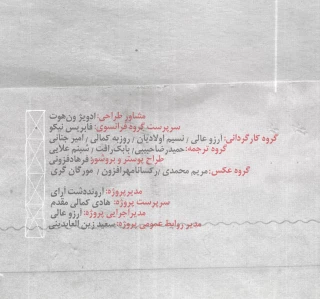 مشاور طراحی: ادویژ ون‌هوت
سرپرست گروه فرانسوی: فابریس نیکو
گروه کارگردانی: آرزو عالی / نسیم اولادیان / روزبه کمالی / امیر جنانی
گروه ترجمه: حمیدرضا حبیبی / بابک رأفت / شبنم علایی
طراح پوستر و بروشور: فرهاد فزونی
گروه عکس: مریم محمدی / رکسانا مهرافزون / مورگان گری
مدیر پروژه: اروند دشت آرای
سرپرست پروژه: هادی کمالی مقدم
مدیر اجرایی پروژه: آرزو عالی
مدیر روابط عمومی پروژه: سعید زین العابدینی